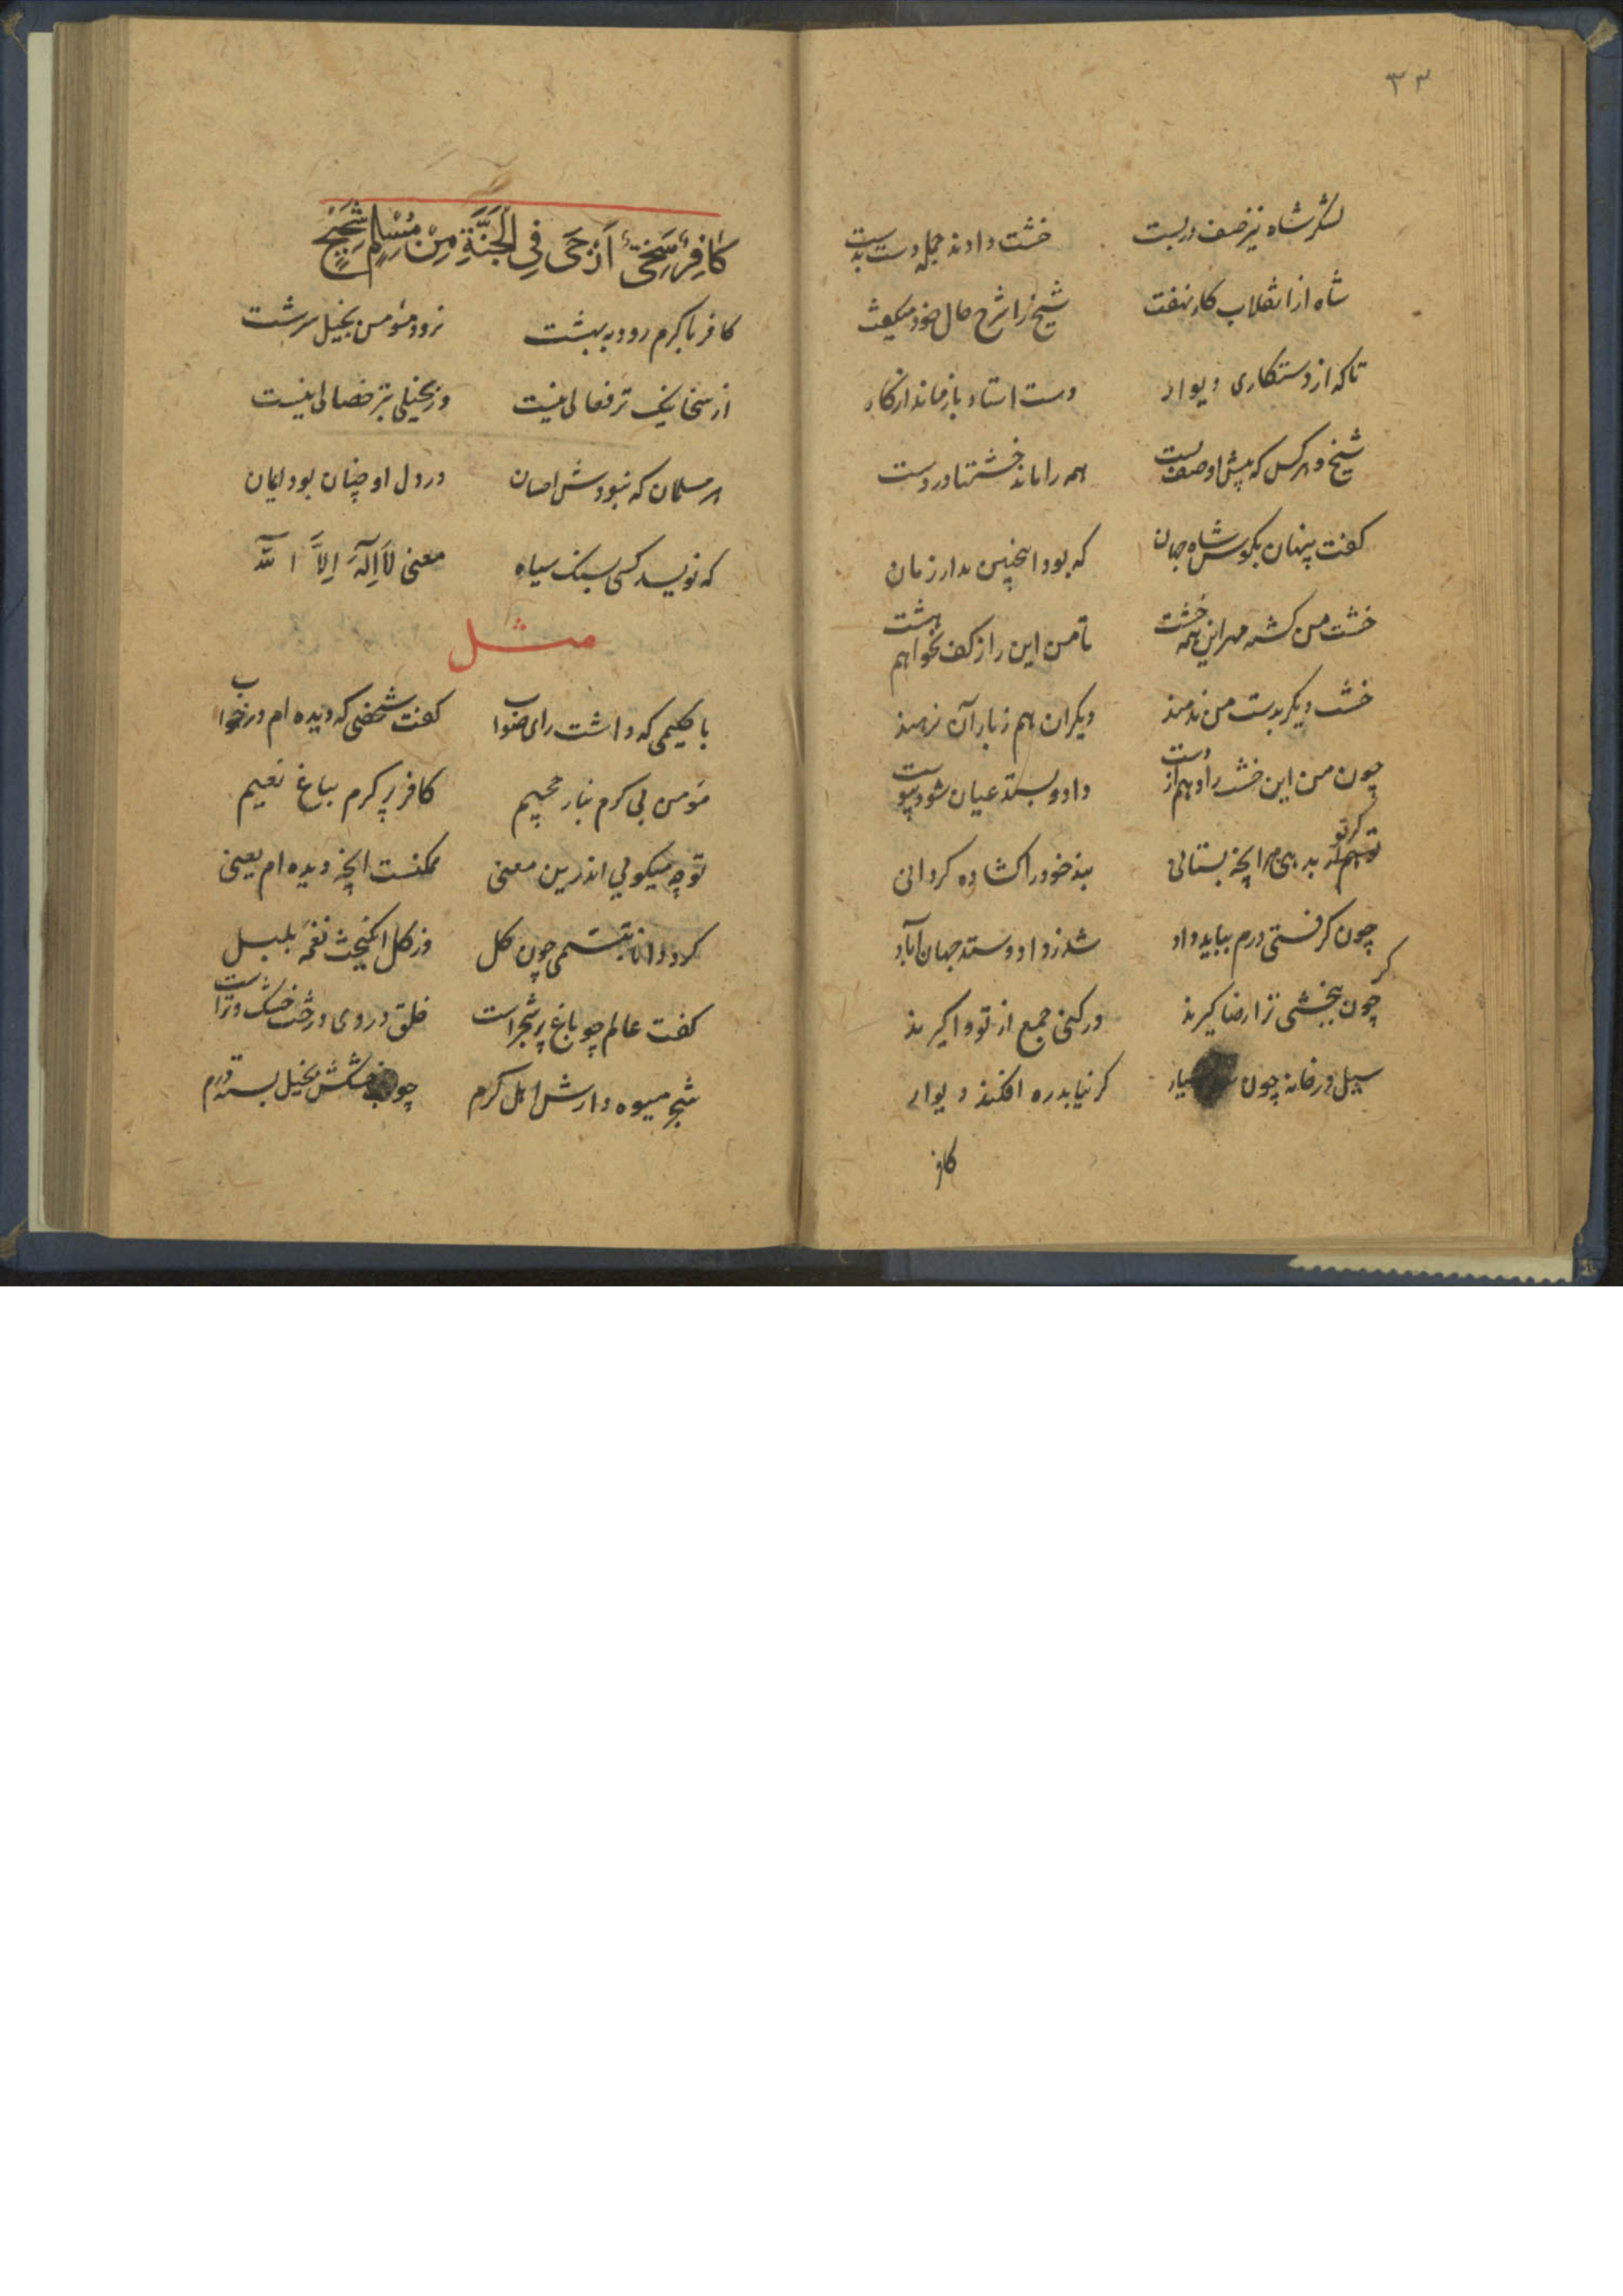 ۳۳
لشکر شاه نیز صف در بست خشت دادند جمله دست بدست
شاه از انقلاب کار نهفت شیخ را شرح حال خود میگفت
تا که از دستکاری دیوار دست استاد باز ماند از کار
شیخ و هر کس که پیش او صف بست همه را ماند خشتها در دست
گفت پنهان بگوش شاه جهان که بود اینچنین مدار زمان
خشت من گشته مهر این همه خشت تا من این را ز کف نخواهم هشت
خشت دیگر بدست من ندهند دیگران هم ز بار آن نرهند
چون من این خشت را دهم از دست داد و بستد عیان شود پیوست
گر تو هم بدهی هر آنچه بستانی بند خود را گشاده گردانی
چون گرفتی درم بباید داد شد ز داد و ستد جهان آباد
چون ببخشی ترا رضا گیرند ور کنی جمع از تو واگیرند
سیل در خانه چون گر نیابد ره افکند دیوار
کافر
كَافِرٌ سَخِيٌّ أَرْجَى فِي الْجَنَّةِ مِنْ مُسْلِمٍ شَحِيحٍ
کافر با کرم رود به بهشت نرود مؤمن بخیل سرشت
از سخا نیک تر فعالی نیست وز بخیلی بتر خصالی نیست
هر مسلمان که نبودش احسان در دل او چنان بود ایمان
که نویسد کسی بسنگ سیاه معنی لَا اِلٰهَ اِلَّا اللّٰه
مثل
با حکیمی که داشت رای صواب گفت شخصی که دیده ام در خواب
مؤمن بی کرم بنار جحیم کافر پر کرم بباغ نعیم
تو چه میگویی اندرین معنی ممکنست آنچه دیده ام یعنی
کرد دانا تبسمی چون گل وز گل انگیخت نغمه بلبل
گفت عالم چو باغ پر شجر است خلق در وی درخت خشک و تر است
شجر میوه دارش اهل کرم چوب خشکش بخیل بسته درم